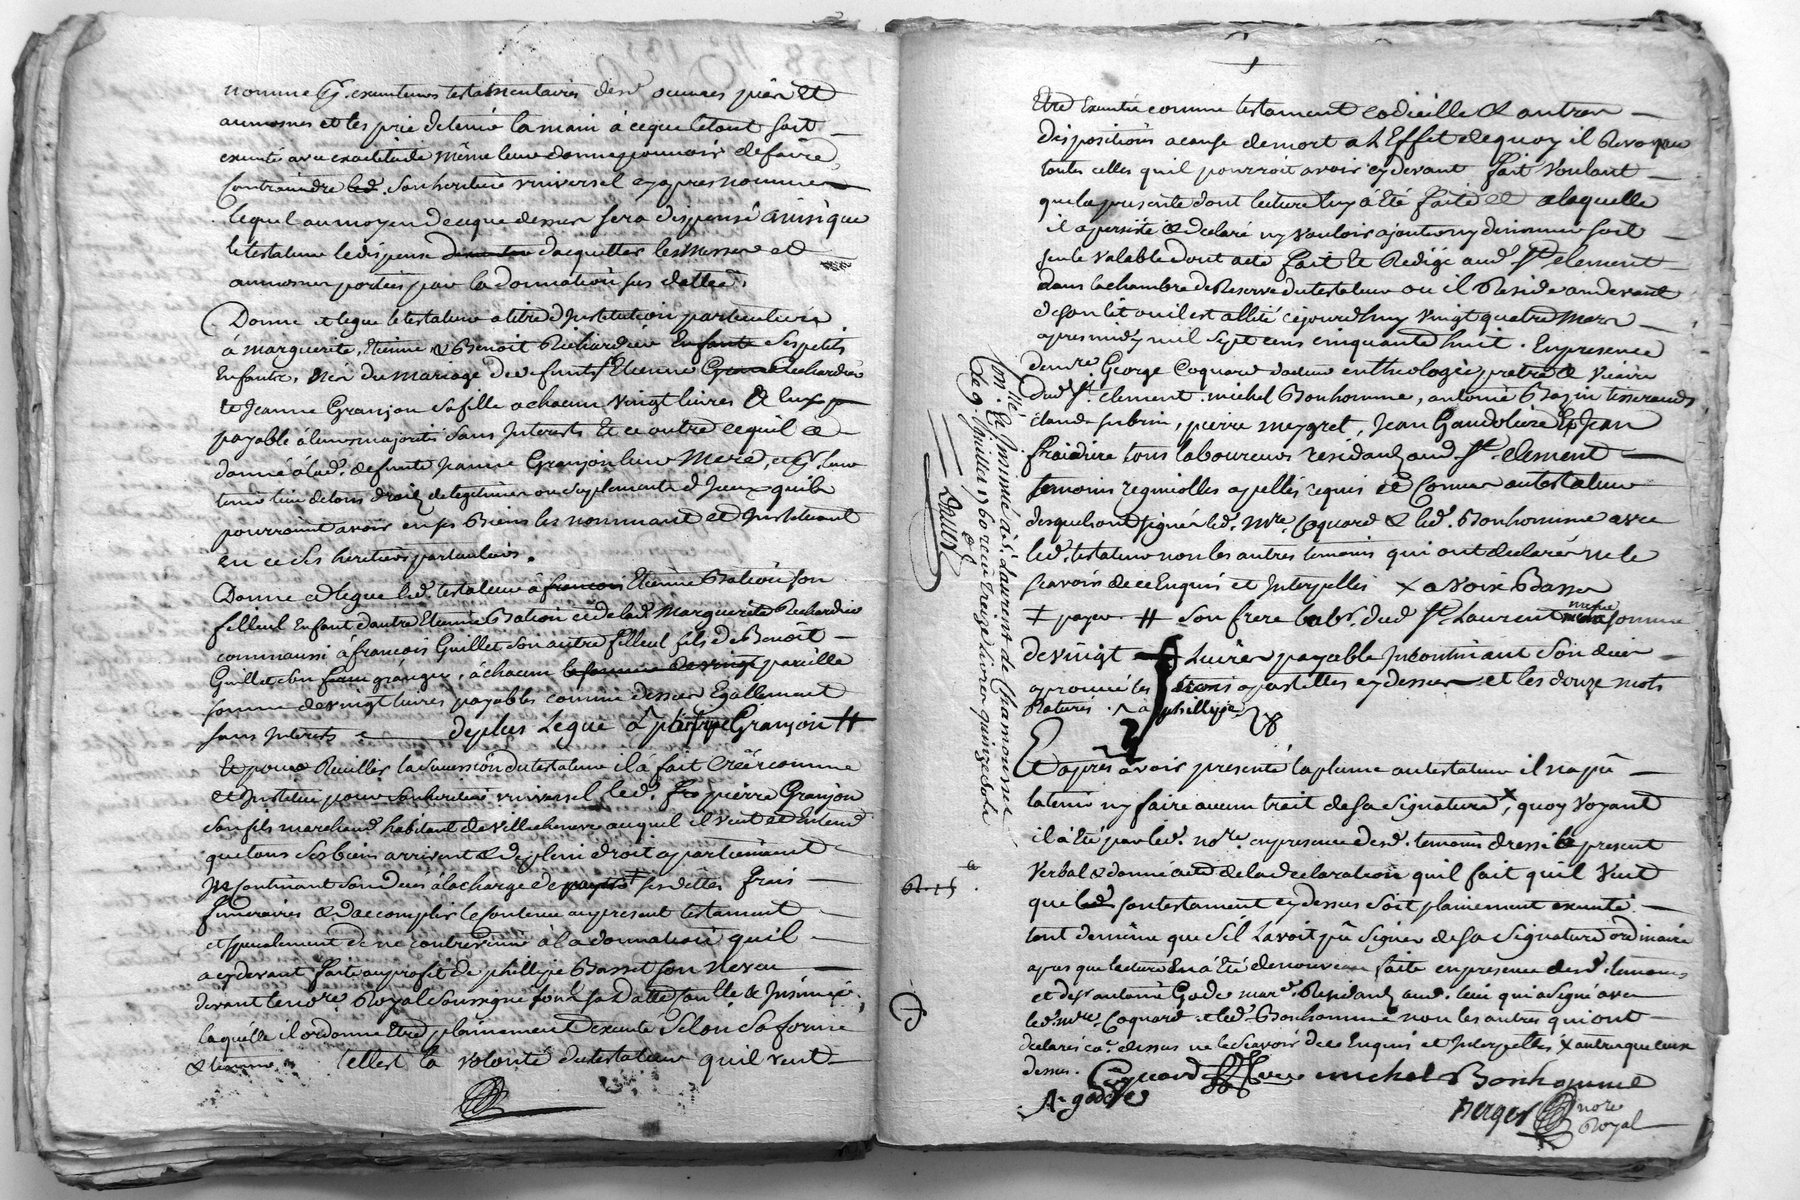 nomme ses executeurs testamentaires desd. oeuvres pies et
aumosnes et les prie de tenir la main à ce que le tout soit
executé avec exactitude même leur donne pouvoir de faire
Contraindre led. Son heritier vniversel cyapres nommé
lequel au moyen de ce que dessus sera dispensé ainsi que
le testateur le dispense dacquitter les Messes et
aumosnes portées par la donnation sus dattée.
Donne et legue le testateur a titre d'Institution particuliere
à marguerite, Etienne & Benoit Richardier Enfants Ses petits
Enfants, Nés du mariage de defunts Etienne Richardier
et Jeanne Granjon sa fille a chacun vingt livres
payable à leurs majorité sans Interests Et ce outre ce quil a
donné à lad. defunte Jeanne Granjon leur Mere, et pour leur
tenir lieu de tous droits de legitimes ou Suplement d'Iceux quils
pourroient avoir en ses Biens les nommant et Instituant
en ce Ses heritiers particuliers.
Donne et legue led. testateur à francois Etienne Bation son
filleul Enfant d'autre Etienne Bation et de lad. Marguerite Richardier
comm'aussi à francois Guillet son autre filleul fils de Benoit
Guillet et de granger, à chacun la somme de vingt pareille
somme de vingt livres payables comme dessus Egallement
sans Interests de plus Legue à pierre Granjon #
Et pour Recuillir la Succession du testateur il à fait Créé nomme
et Institué pour Son heritier vniversel led. Sr pierre Granjon
Son fils marchand habitant de villechenève auquel il veut et Entend
que tous Ses biens arrivent & de plein droit appartiennent
Incontinant Son deces à la charge de payer ‡ ses dettes frais
funeraires & d'accomplir le Contenu au present testament
et specialement de ne contrevenir à la donnation quil
a cydevant faite au profit de phillipe Basset son Neveu
devant le nore Royal Soussigné Sous Sa datte Controllée & Insinuée,
laquelle il ordonne Etre plainement Executé Selon Sa forme
& teneur telle est la volonté du testateur quil veut
Etre Executée comme testament codicille & autres
dispositions a cause de mort a L'Effet de quoy il Revoque
toutes celles quil pourroit avoir cy devant fait voulant
que la presente dont lecture luy à Eté faite et a laquelle
il a persisté & declaré ny vouloir ajouter ny diminuer soit
seule valable dont acte fait Et Redigé aud. St. clement
dans la chambre de Reserve du testateur ou il Reside au devant
de son lit ou il est allité cejourdhuy vingt quatre Mars
apres midy mil Sept cens cinquante huit. En presence
de mre George Coquard docteur en theologie pretre & vicaire
dud. St. clement. michel Bonhomme, antoine Bazin tisserands
claude subrin, pierre meygret, Jean Gaudoliere Et Jean
fraidire tous laboureurs residants aud. St. clement
temoins regnicolles appellés requis et Connus au testateur
desquels ont signés led. Mre. Coquard & led. Bonhomme avec
led. testateur non les autres temoins qui ont declarés ne le
scavoir de ce Enquis et Interpellés x a voix Basse
‡ payer # Son frere labr. dud. St. Laurent meme somme
de vingt livres payable Incontinant Son deces
approuvé les trois apostilles cy dessus et les douze mots
Ratures. phillipe
Et apres avoir presenté la plume au testateur il na pû
la tenir ny faire aucun trait de sa Signature x, quoy voyant
il à Eté par led. nore. en presence desd. temoins dressé le present
Verbal & donné acte de la declaration quil fait quil Veut
que led. son testament cy dessus Soit plainement executé
tout de même que sil Lavoit pû Signer de sa Signature ordinaire
apres que lecture En à Eté de nouveau faite en presence desd. temoins
et de sr antoine Gode mard. Residant aud. lieu qui a Signé avec
led. Mre. Coquard et led. Bonhomme non les autres qui ont
declarés come. dessus ne le Scavoir de ce Enquis et Interpellés x autre que ceux
dessus. Coquard vicaire michel Bonhomme
A. gode
Berger nore
Royal
Con.llé Et Insinué à St. Laurent de Chamousset
le 9 Juillet 1760 reçu treize livres quinze sols